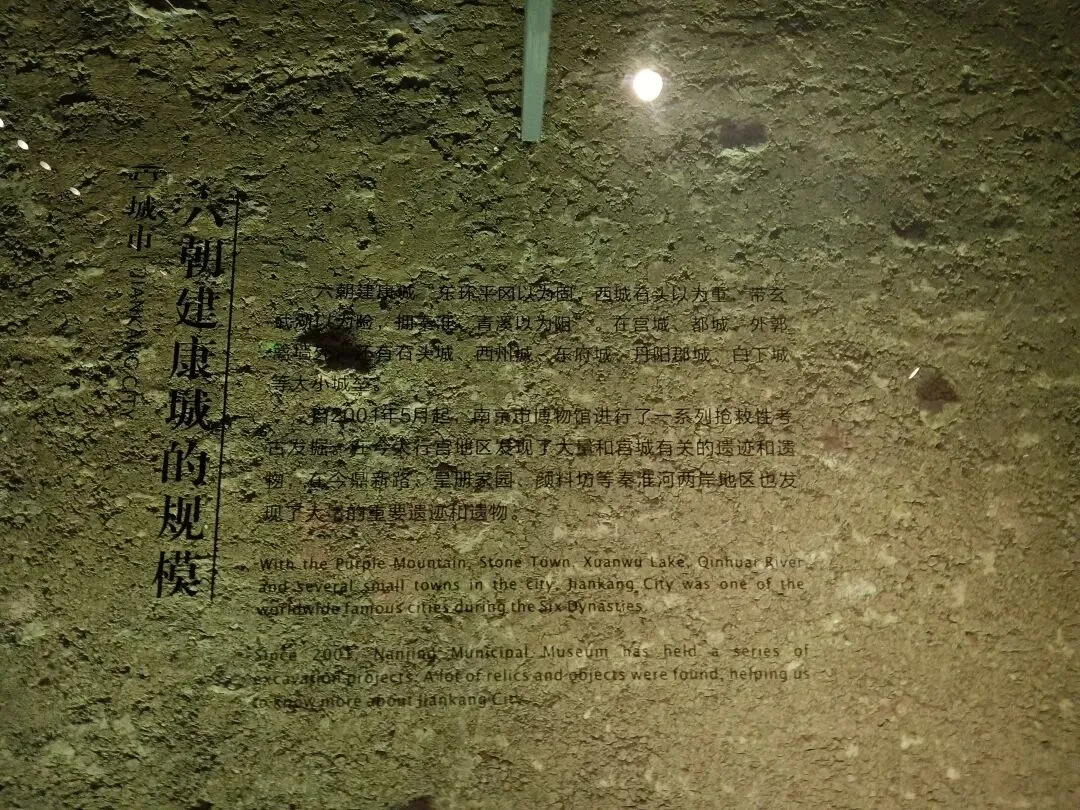 六朝建康城的规模
城市 JIANKANG CITY
六朝建康城“东环平冈以为固，西城石头以为重，带玄
武湖以为险，拥秦淮、青溪以为阻”。在宫城、都城、外郭
还有石头城、西州城、东府城、丹阳郡城、白下城
等大小城垒。
自2001年5月起，南京市博物馆进行了一系列抢救性考
古发掘。在今大行宫地区发现了大量和宫城有关的遗迹和遗
物，在今鼎新路、皇册家园、颜料坊等秦淮河两岸地区也发
现了大量的重要遗迹和遗物。
With the Purple Mountain, Stone Town, Xuanwu Lake, Qinhuai River
and several small towns in the city, Jiankang City was one of the
worldwide famous cities during the Six Dynasties.
Since 2001, Nanjing Municipal Museum has held a series of
excavation projects. A lot of relics and objects were found, helping us
to know more about Jiankang City.